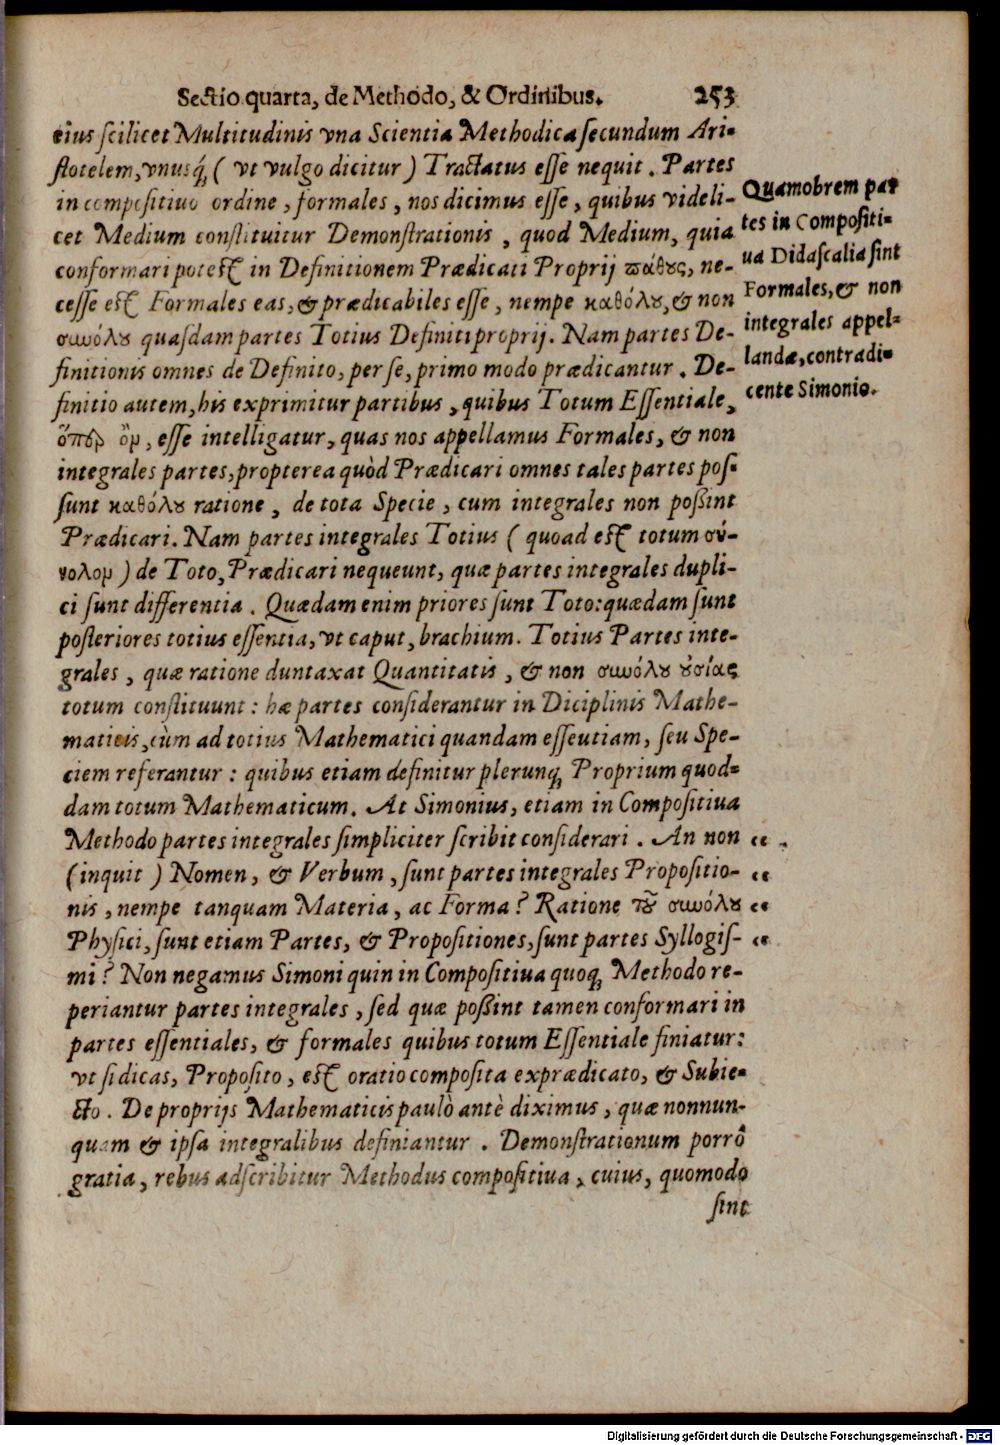 Sectio quarta, de Methodo, & Ordinibus. 253
eius scilicet Multitudinis vna Scientia Methodica secundum Ari-
stotelem, vnusq́; ( vt vulgo dicitur ) Tractatus esse nequit . Partes
in compositiuo ordine , formales , nos dicimus esse , quibus videli-
cet Medium constituitur Demonstrationis , quod Medium, quia
conformari potest in Definitionem Prædicati Proprij πάθους, ne-
cesse est Formales eas, & prædicabiles esse , nempe καθόλου, & non
συνόλου quasdam partes Totius Definiti proprij. Nam partes De-
finitionis omnes de Definito, per se, primo modo prædicantur . De-
finitio autem, his exprimitur partibus , quibus Totum Essentiale,
ὅπερ ὂν, esse intelligatur, quas nos appellamus Formales, & non
integrales partes, propterea quòd Prædicari omnes tales partes pos-
sunt καθόλου ratione , de tota Specie , cum integrales non possint
Prædicari. Nam partes integrales Totius ( quoad est totum σύ-
νολον ) de Toto, Prædicari nequeunt, quæ partes integrales dupli-
ci sunt differentia . Quædam enim priores sunt Toto: quædam sunt
posteriores totius essentia, vt caput, brachium. Totius Partes inte-
grales , quæ ratione duntaxat Quantitatis , & non συνόλου οὐσίας
totum constituunt : hæ partes considerantur in Diciplinis Mathe-
maticis, cùm ad totius Mathematici quandam esseutiam, seu Spe-
ciem referantur : quibus etiam definitur plerunq; Proprium quod-
dam totum Mathematicum. At Simonius, etiam in Compositiua
Methodo partes integrales simpliciter scribit considerari . An non “
(inquit ) Nomen, & Verbum, sunt partes integrales Propositio- “
nis , nempe tanquam Materia , ac Forma? Ratione τοῦ συνόλου “
Physici, sunt etiam Partes, & Propositiones, sunt partes Syllogis- “
mi? Non negamus Simoni quin in Compositiua quoq; Methodo re-
periantur partes integrales , sed quæ possint tamen conformari in
partes essentiales, & formales quibus totum Essentiale finiatur:
vt si dicas, Proposito , est oratio composita ex prædicato, & Subie-
cto . De proprijs Mathematicis paulò antè diximus , quæ nonnun-
quam & ipsa integralibus definiantur . Demonstrationum porrò
gratia , rebus adscribitur Methodus compositiua , cuius, quomodo
sint
Quamobrem par
tes in Compositi-
ua Didascalia sint
Formales, & non
integrales appel-
landæ, contradi-
cente Simonio.
Digitalisierung gefördert durch die Deutsche Forschungsgemeinschaft - DFG